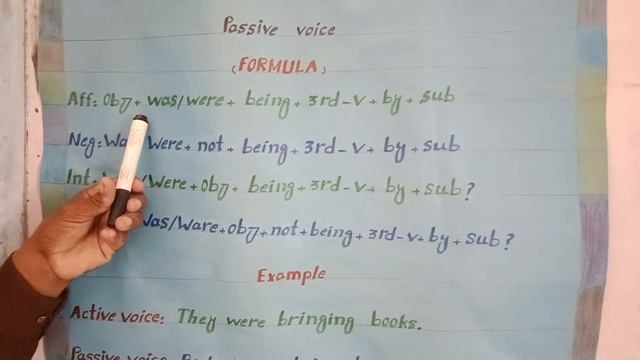 Passive voice
(FORMULA)
Aff: Obj + was/were + being + 3rd-v + by + sub
Neg: Were + not + being + 3rd-v + by + sub
Int: /Were + obj + being + 3rd-v + by + sub?
Was/Ware + obj + not + being + 3rd-v + by + sub?
Example
Active voice: They were bringing books.
Passive voice: